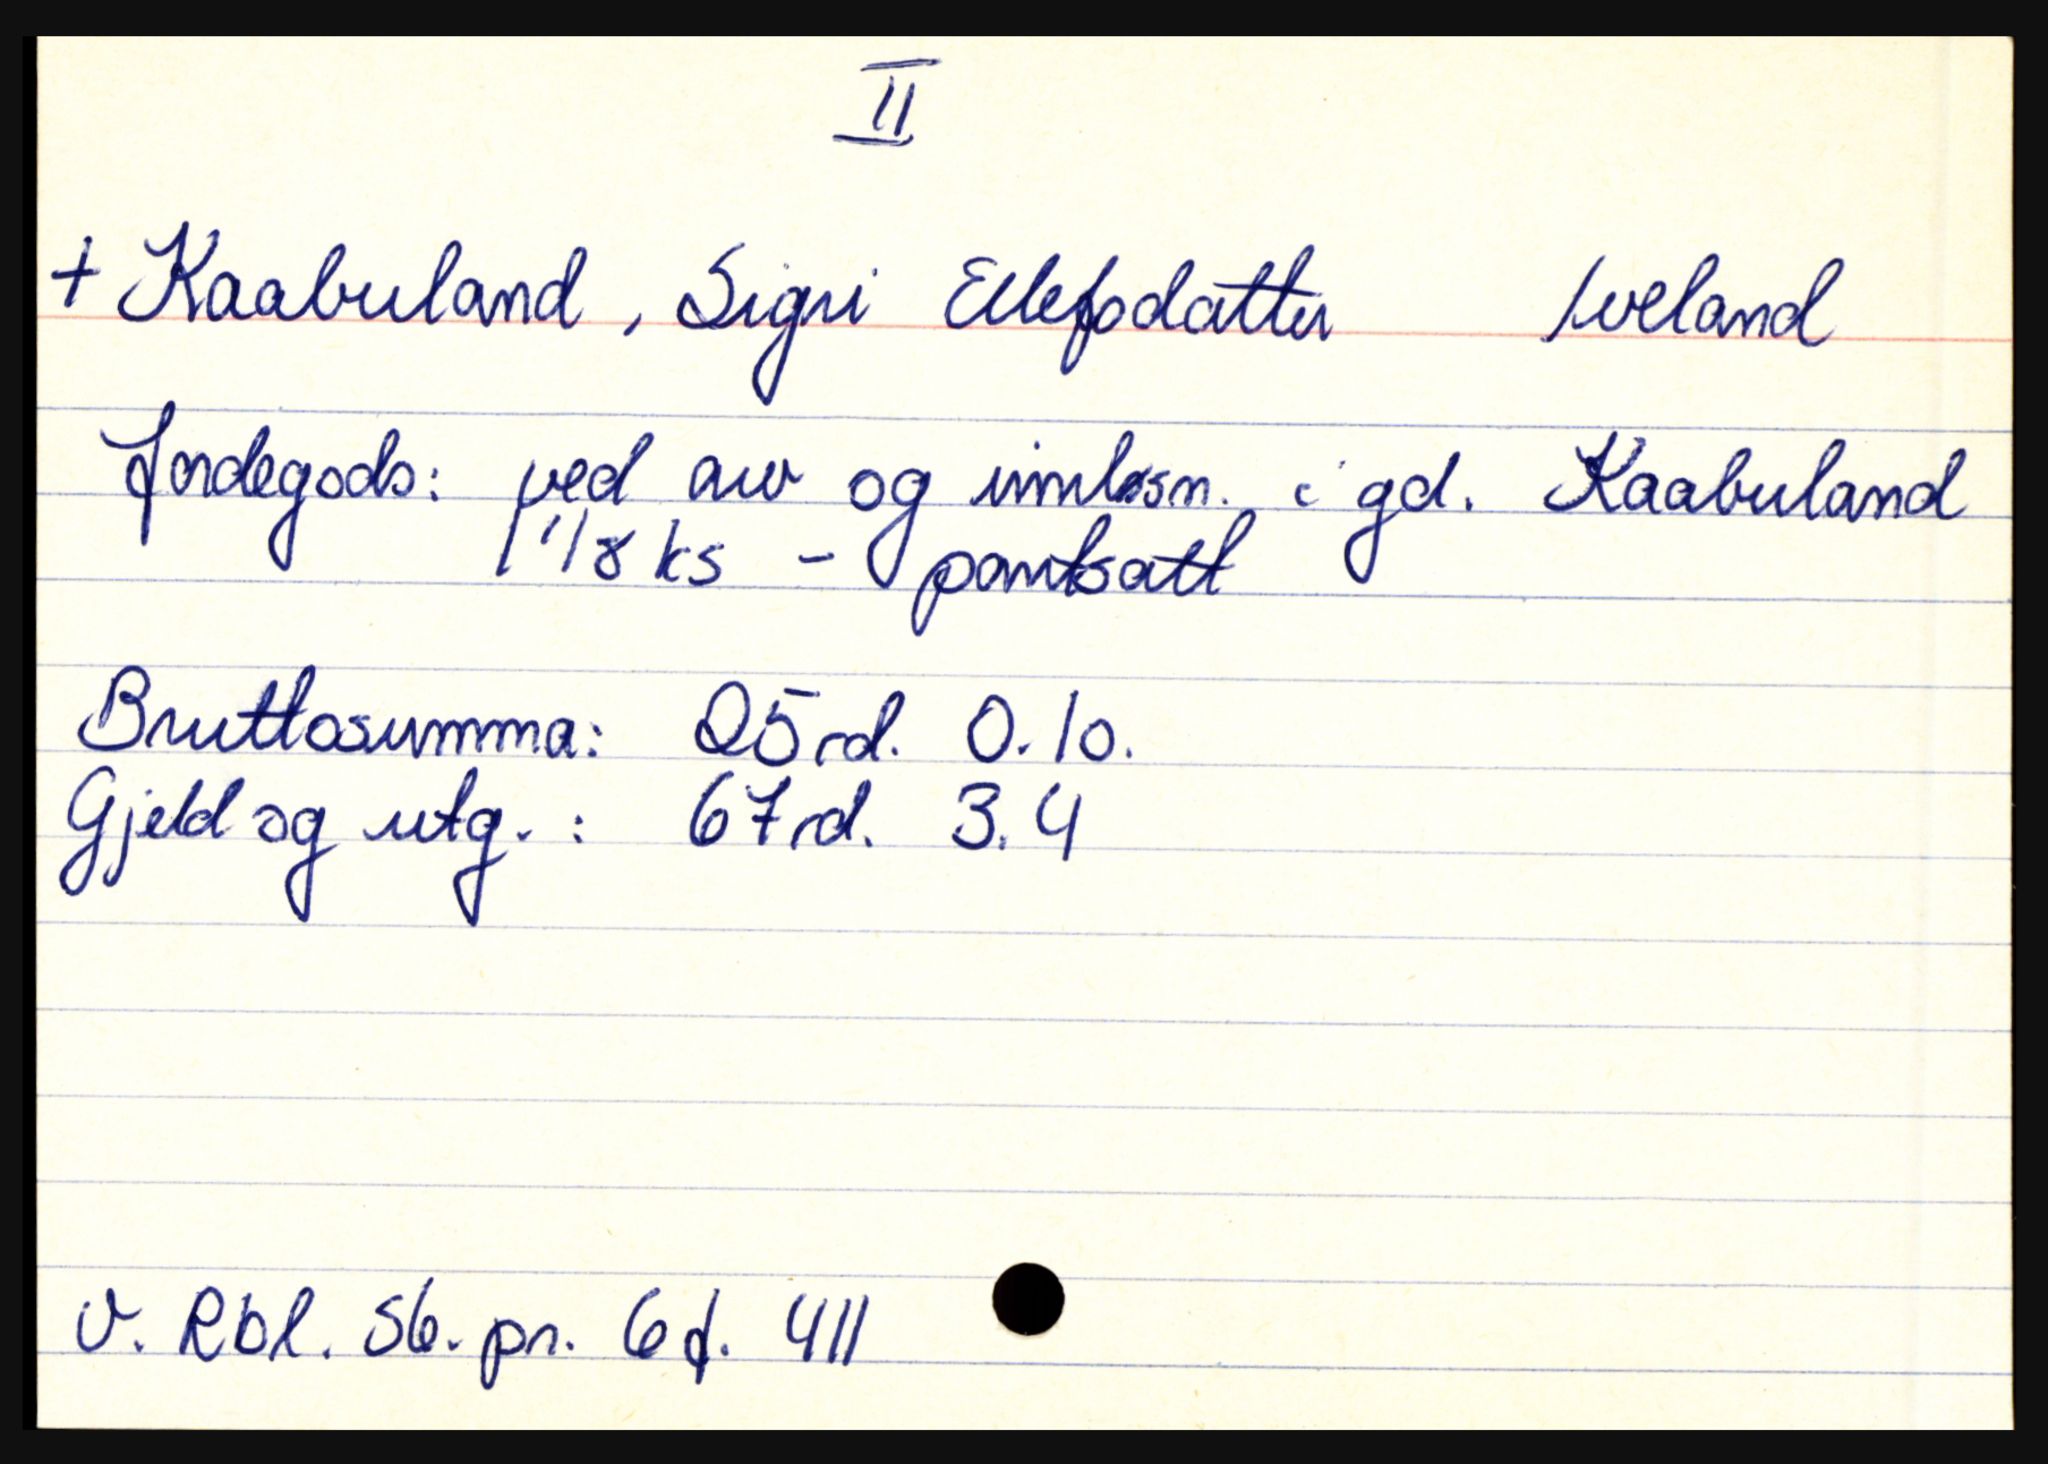 II
+ Kaabuland, Sigri Ellefsdatter Iveland
Jordegods: ved arv og innløsn. i gd. Kaabuland
1 1/8 ks - pantsatt
Bruttosumma: 25 rd. 0.10.
Gjeld og utg. : 67 rd. 3.4
V. Rbl. sb. pr. 6 f. 411